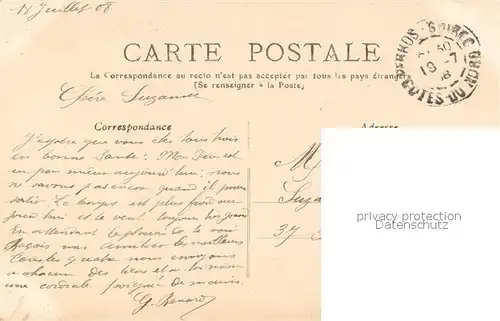 18 Juillet 08
CARTE POSTALE
La Correspondance au recto n'est pas acceptée par tous les pays étrangers
(Se renseigner à la Poste)
Chère Suzanne
Correspondance
Adresse
PERROS-GUIREC
19 -7
08
COTES-DU-NORD
J'espère que vous êtes tous trois
en bonne santé. Mon
un peu mieux aujourd'hui, nous
ne savons pas encore quand il pourra
sortir. Le temps est plus froid au
jourd'hui et le vent toujours
En attendant le plaisir de te voir
reçois nos meilleures
caresses nous envoyons
a chacun des tiens et a toi même
une cordiale poignée de mains.
G. Renard
M
Suza
37
privacy protection
Datenschutz